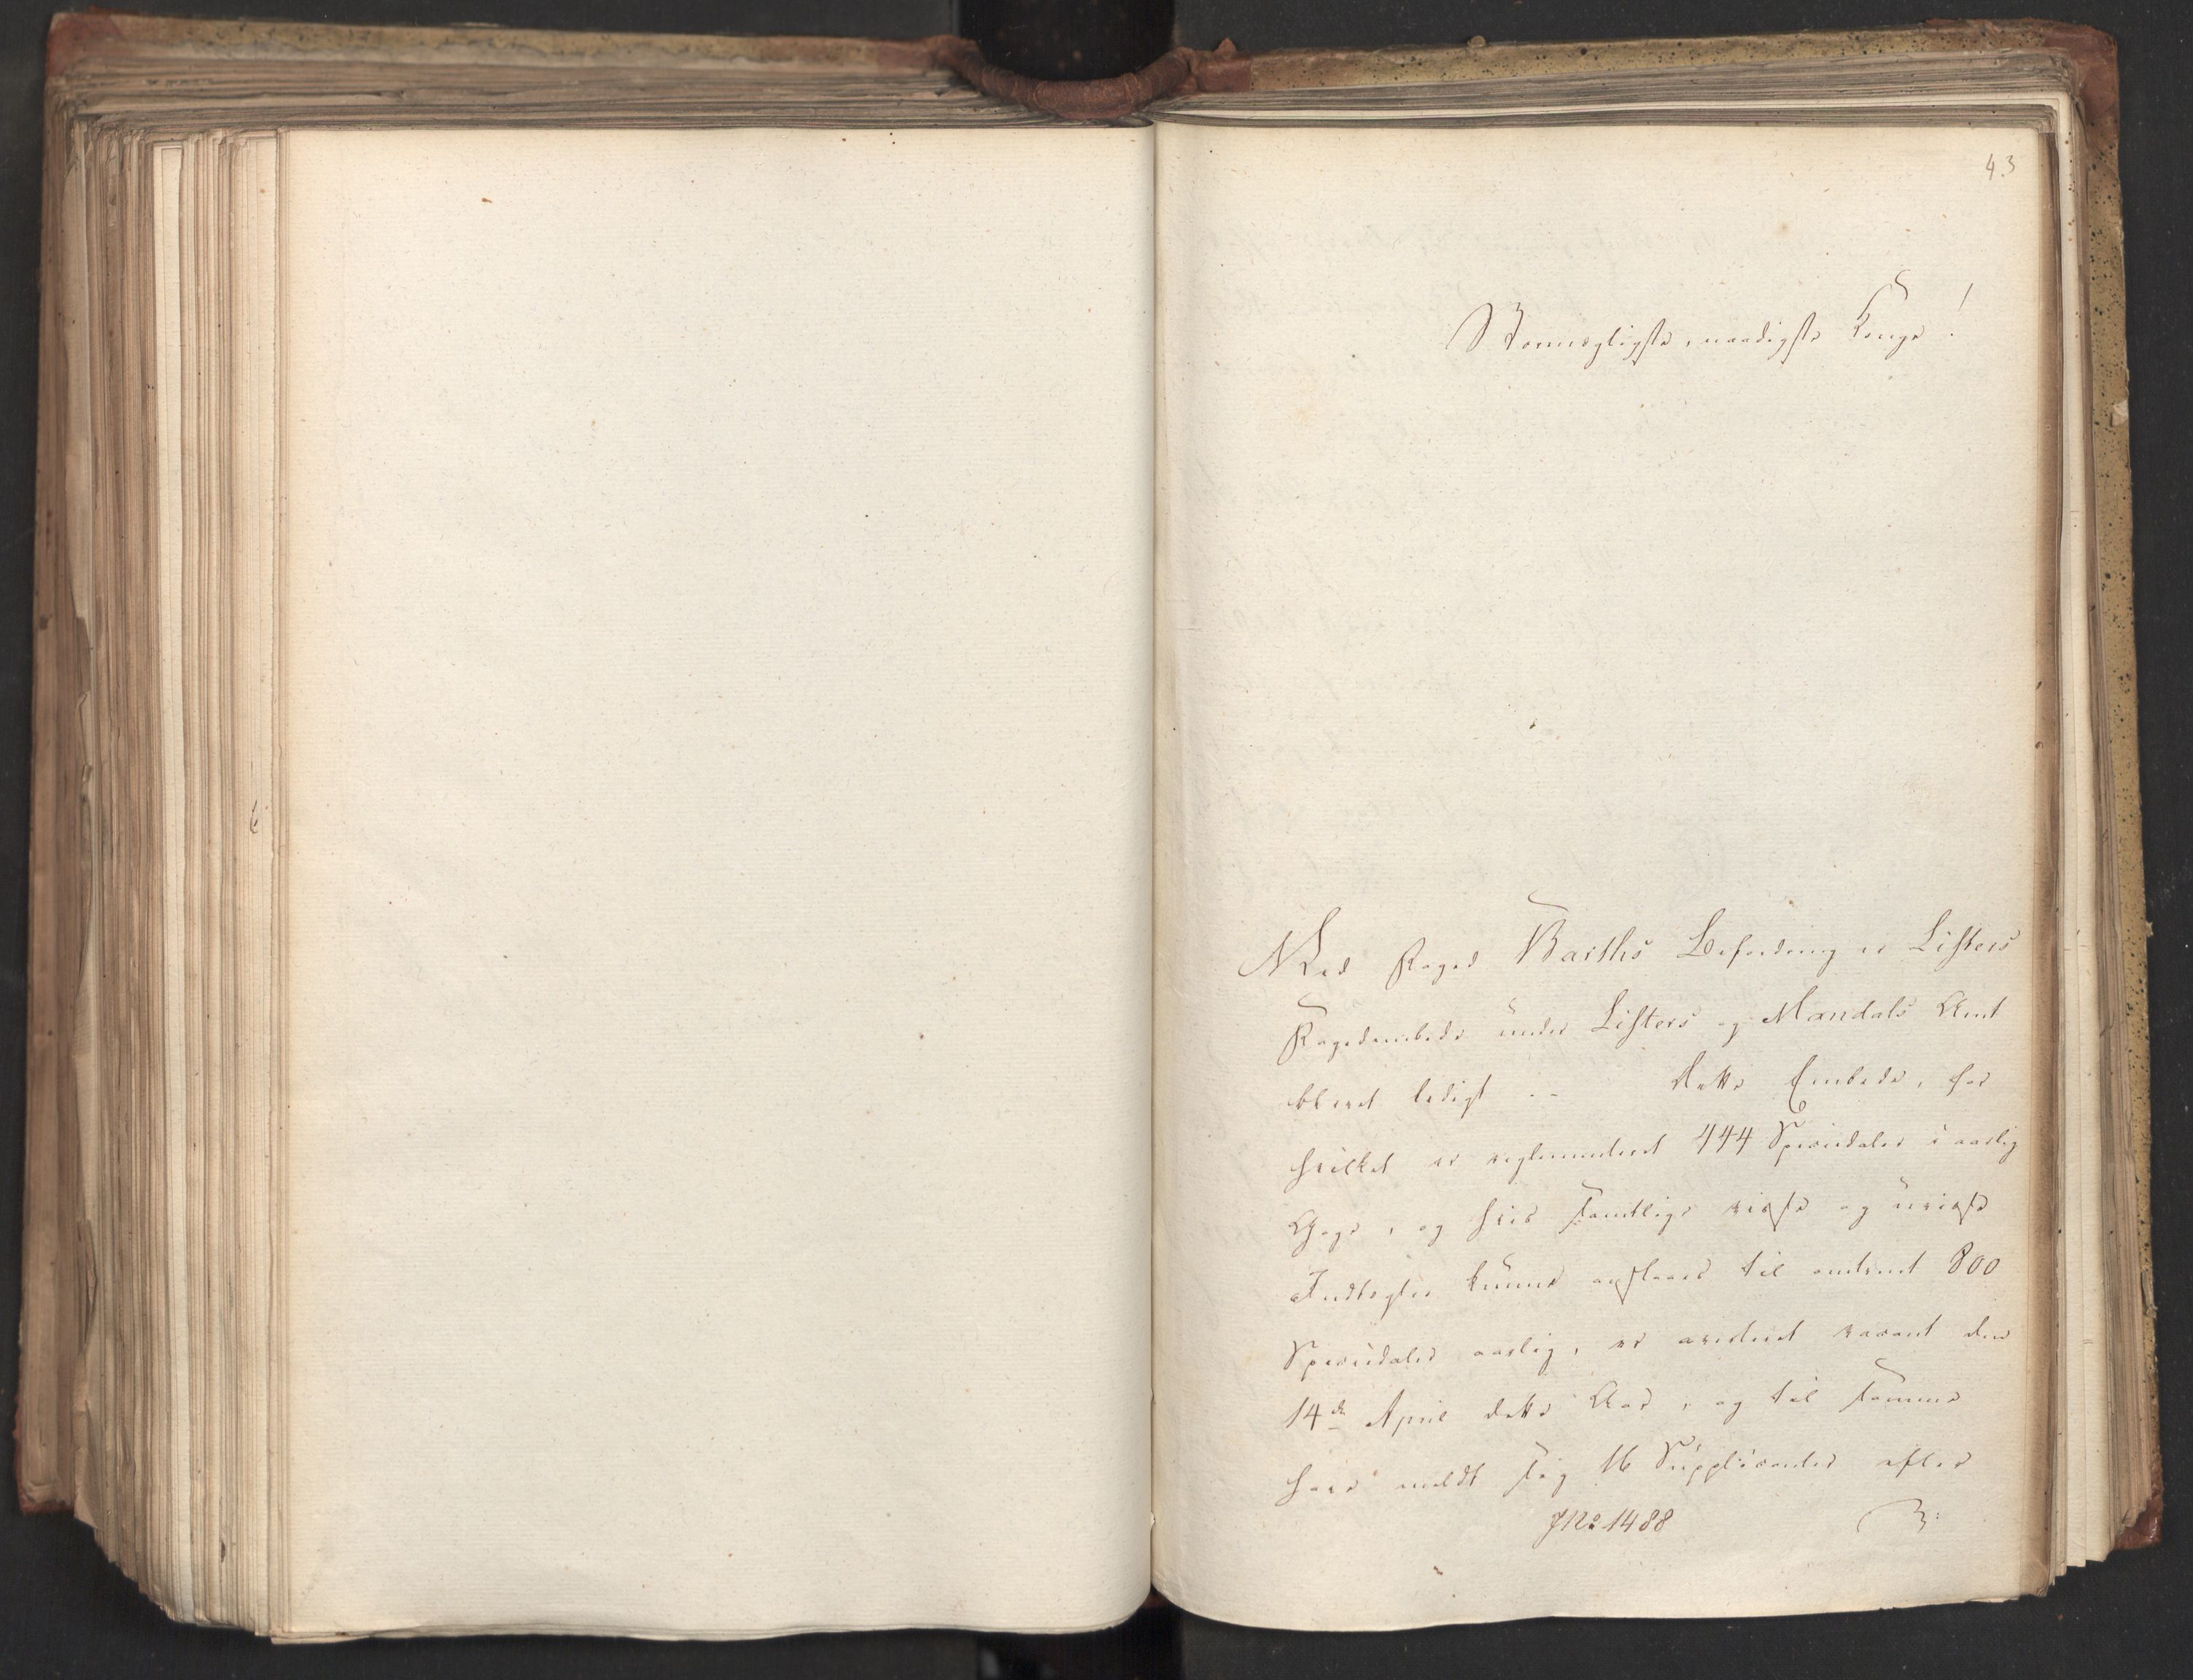 43
Stormægtigste, naadigste Konge!
Ved Foged Barths Befordring er Listers
Fogedembede under Listers og Mandals Amt
blevet ledigt. — Dette Embede, for
hvilket er reglementeret 444 Speciedaler i aarlig
Gage, og hvis samtlige visse og uvisse
Indtægter kunne ansslaaes til omtrent 800
Speciedaler aarlig, er averteret vacant den
14de April dette Aar, og til samme
have meldt sig 16 Supplicanter efter
JNo 1488